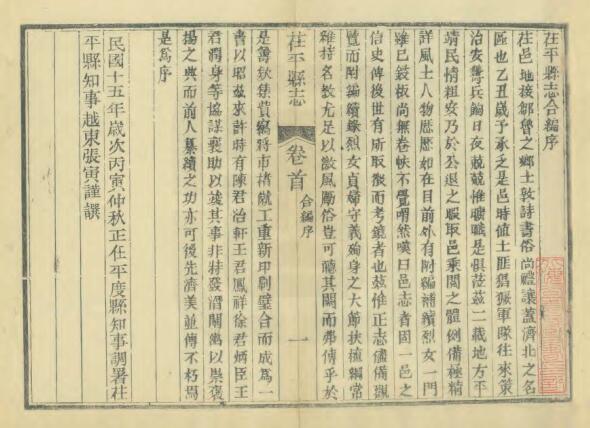 茌平縣志合編序
茌邑地接鄒魯之鄉士敦詩書俗尚禮讓蓋濟北之名
區也乙丑歲予承乏是邑時值土匪猖獗軍隊往來策
治安籌兵餉日夜兢兢惟曠職是懼蒞茲二載地方平
靖民情粗安乃於公退之暇取邑乘閱之體例備極精
詳風土人物歷歷如在目前外有附編補續烈女一門
雖已鋟板尚無卷帙不覺喟然嘆曰邑志者固一邑之
信史傳後世有所取徵而考鏡者也茲惟正志儘備觀
覽而附編續錄烈女貞婦守義殉身之大節扶植綱常
維持名教尤足以激風勵俗豈可聽其闕而弗傳乎於
茌平縣志
卷首
合編序
一
是籌欵集貲鳩將市楮就工重新印刷璧合而成為一
書以昭茲來許時有陳君治軒王君鳳祥徐君炳臣王
君潤身等協謀襄助以竣其事非特發潛闡幽以崇褒
揚之典而前人纂續之功亦可後先濟美並傳不朽焉
是為序
民國十五年歲次丙寅仲秋正任平度縣知事調署茌
平縣知事越東張寅謹譔